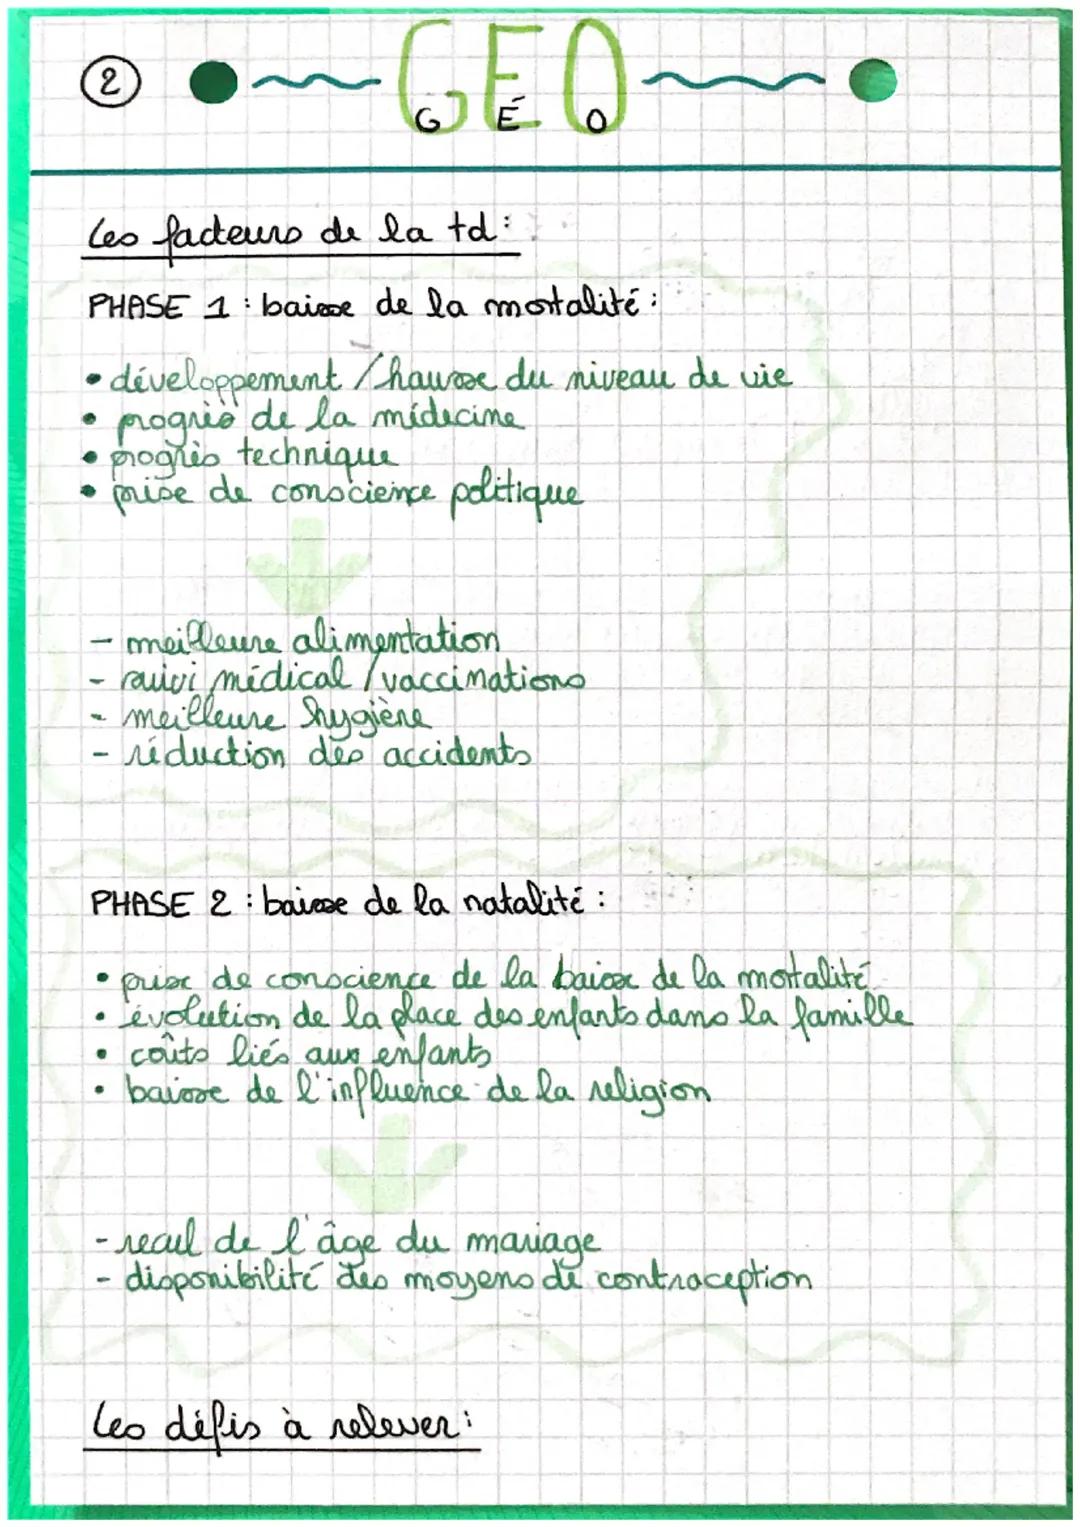 2
GEO
G É O
Les facteurs de la td :
PHASE 1 : baisse de la mortalité :
• développement / hausse du niveau de vie
• progrès de la médecine
• progrès technique
• prise de conscience politique
- meilleure alimentation
- suivi médical / vaccinations
- meilleure hygiène
- réduction des accidents
PHASE 2 : baisse de la natalité :
• prise de conscience de la baisse de la mortalité
• évolution de la place des enfants dans la famille
• coûts liés aux enfants
• baisse de l'influence de la religion
- recul de l'âge du mariage
- disponibilité des moyens de contraception
Les défis à relever :